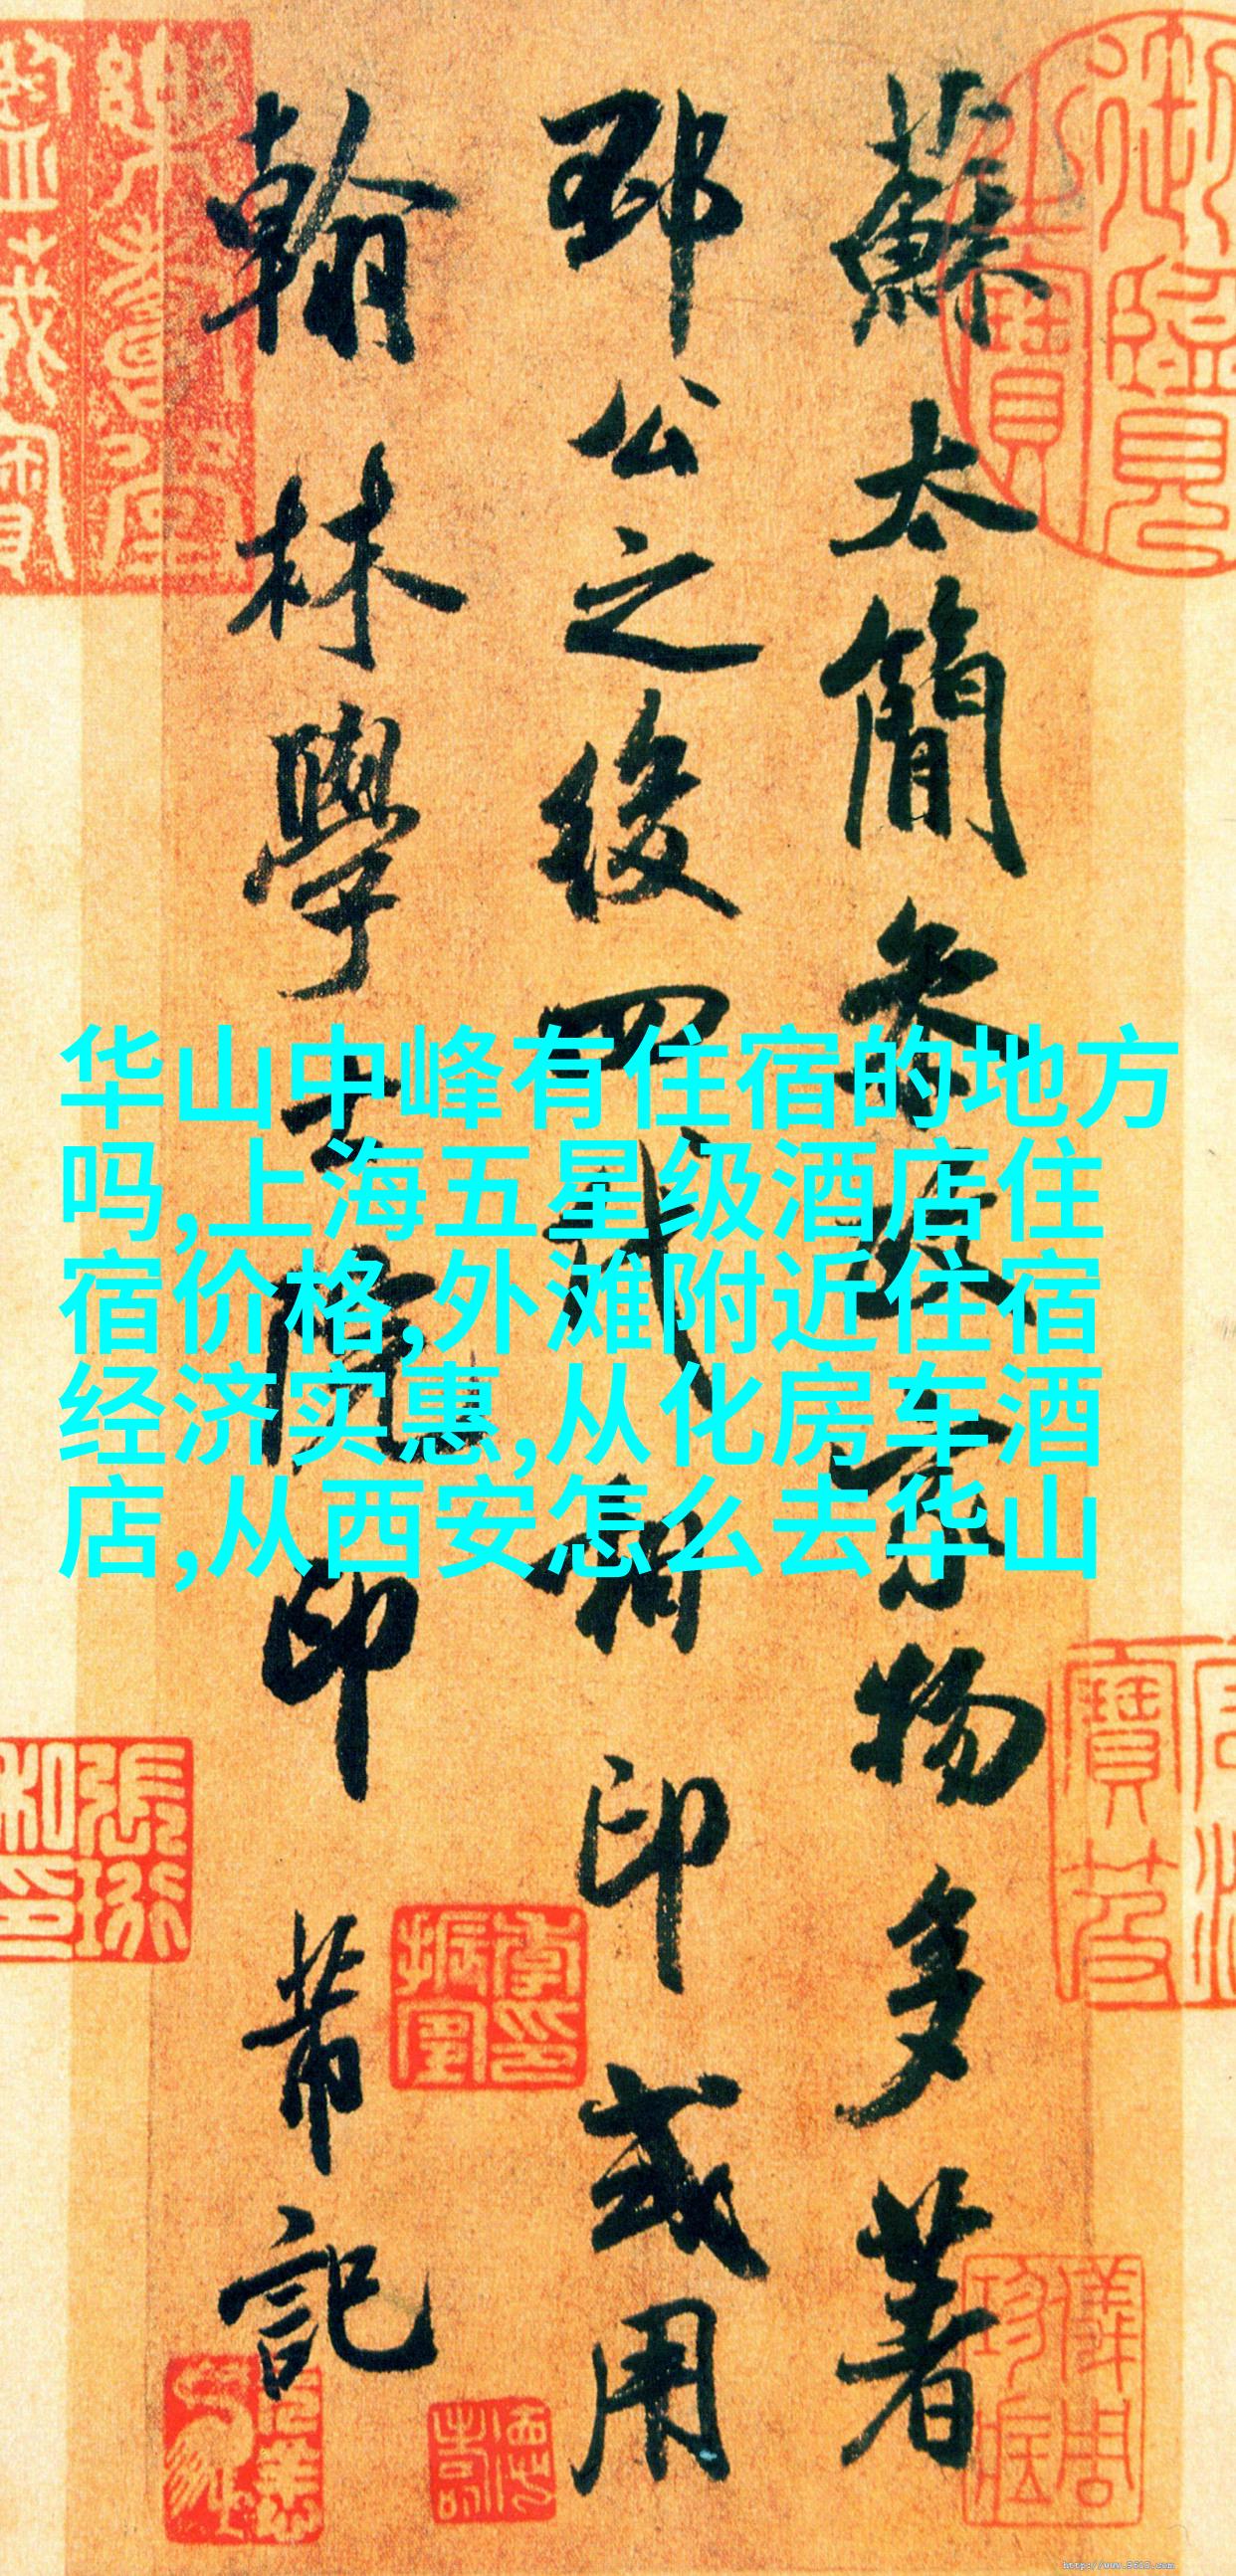 蘇太簡參政家物多著
邳公之後四代相印或用
翰林學士院印 芾記
华山中峰有住宿的地方
吗,上海五星级酒店住
宿价格,外滩附近住宿
经济实惠,从化房车酒
店,从西安怎么去华山